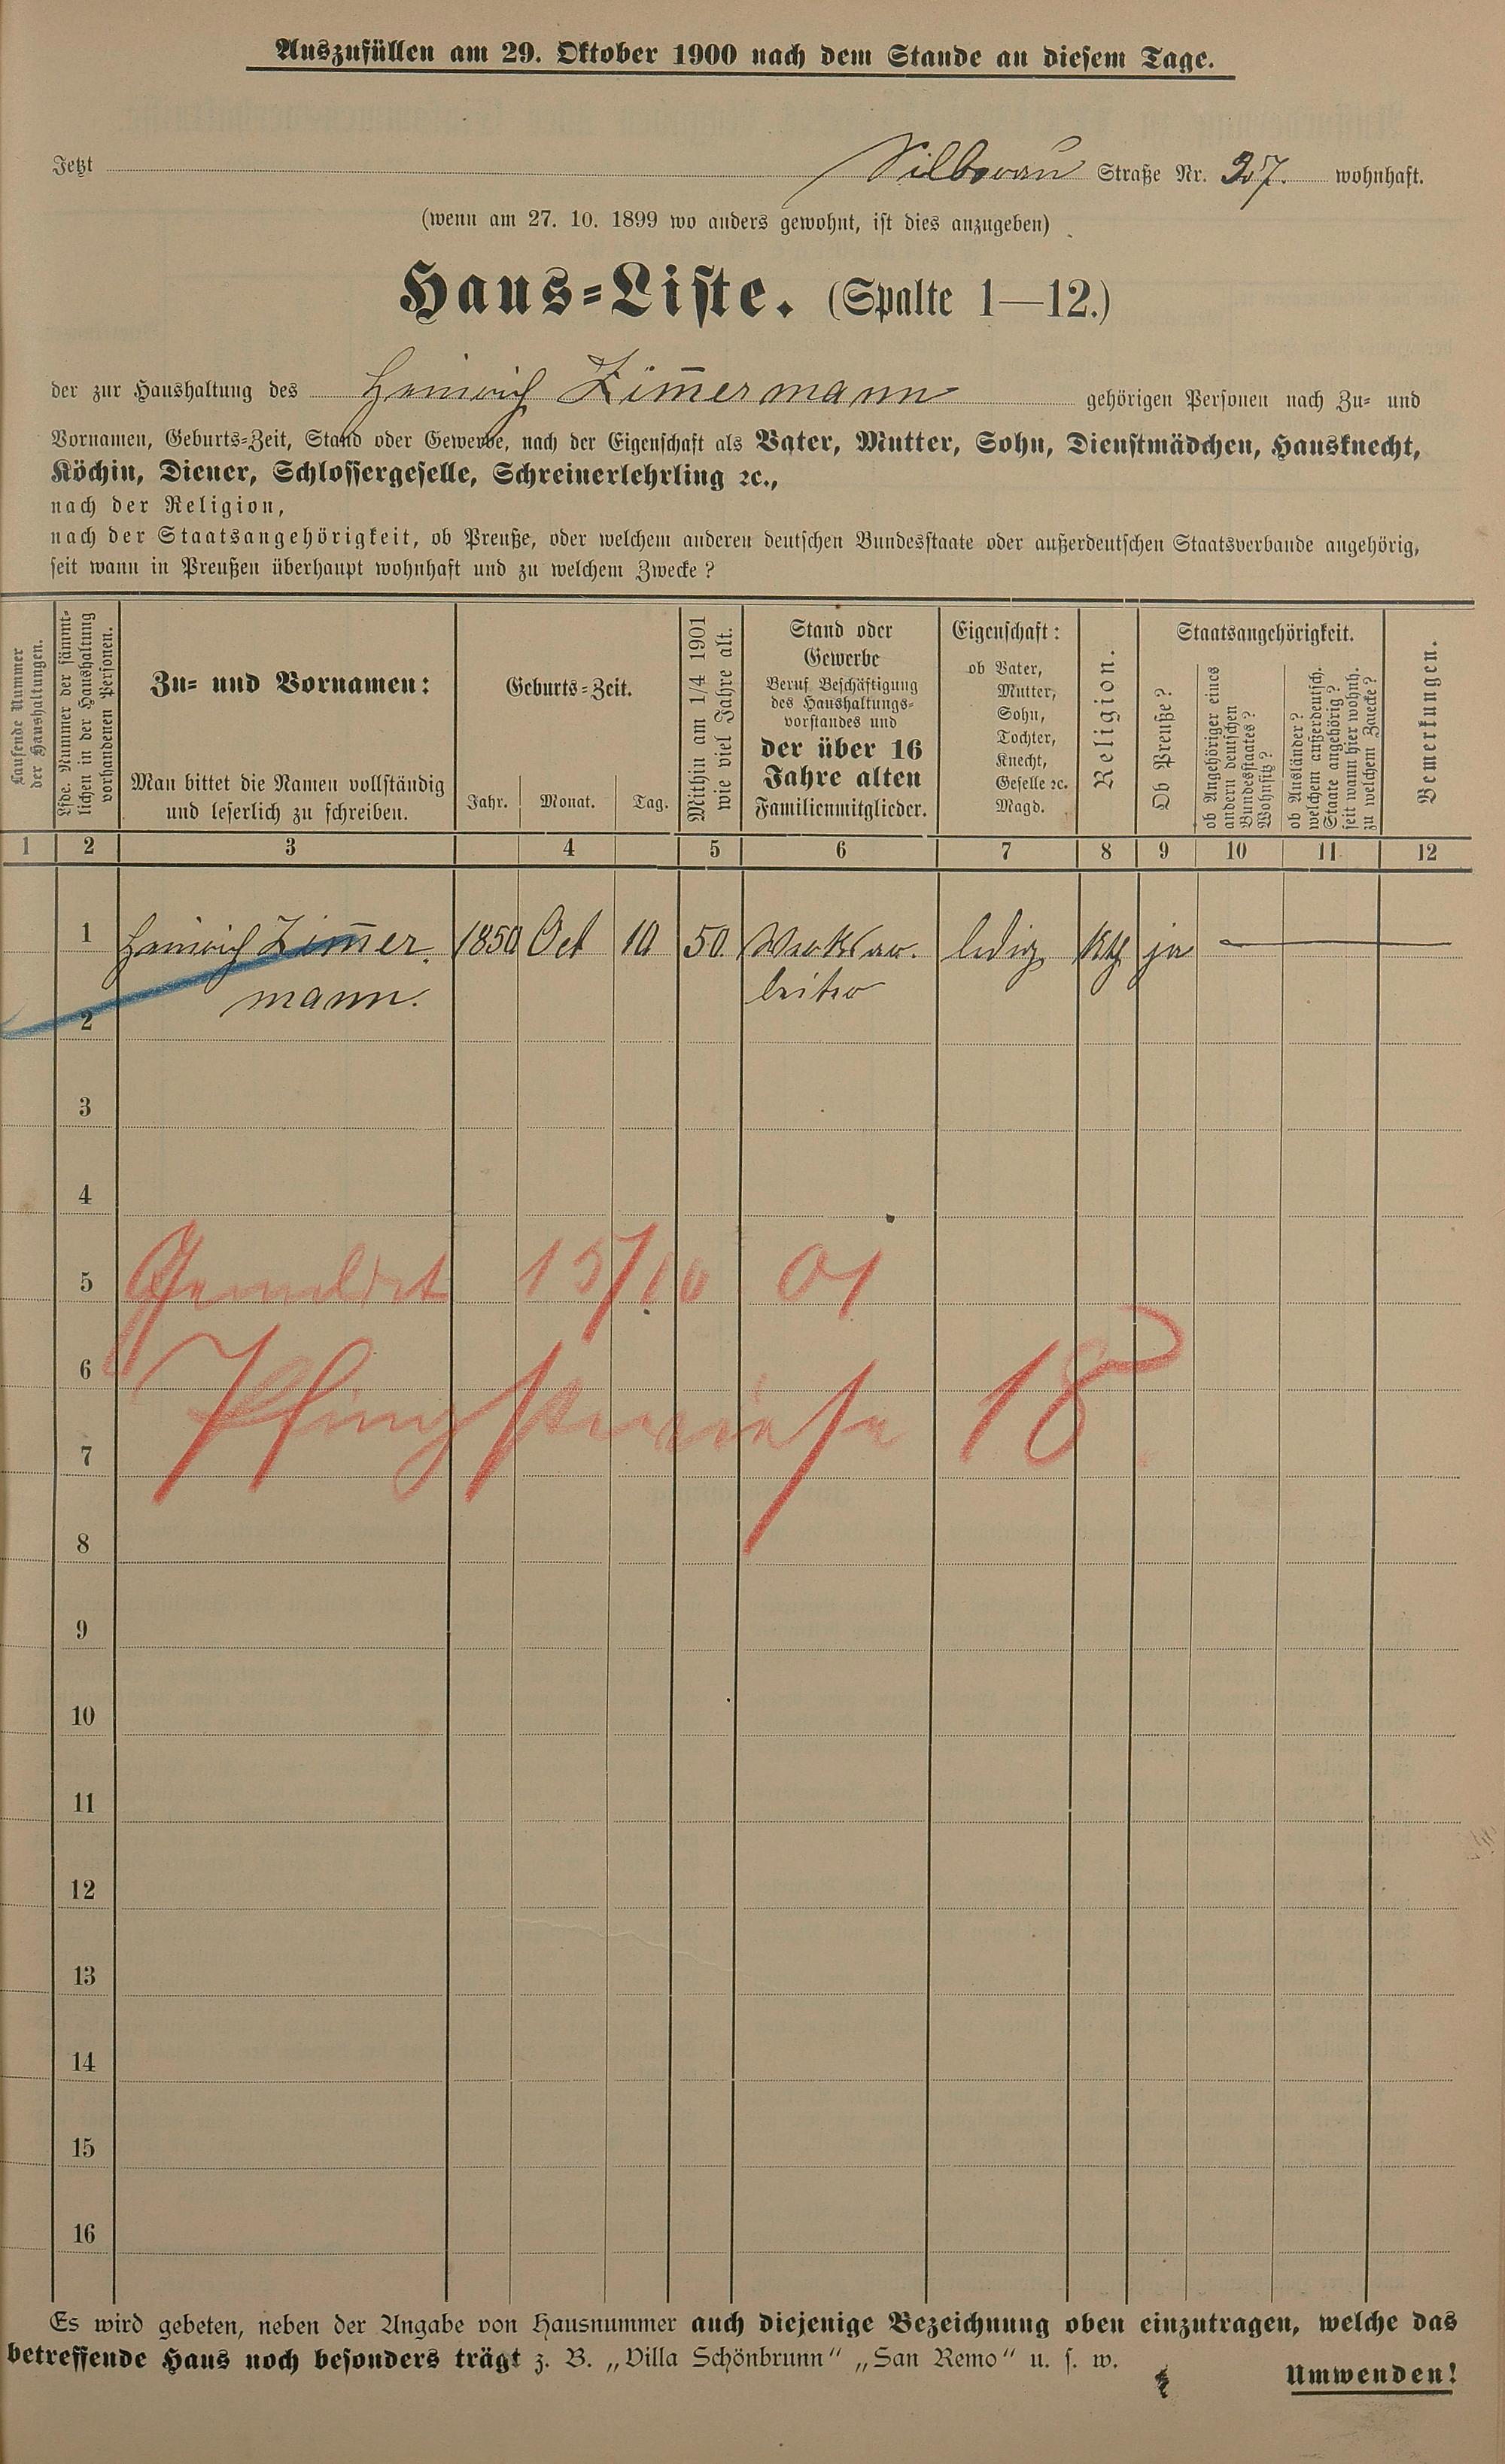 Auszufüllen am 29. Oktober 1900 nach dem Stande an diesem Tage.
Jetzt Silberau Straße Nr. 27. wohnhaft.
(wenn am 27. 10. 1899 wo anders gewohnt, ist dies anzugeben)
Haus-Liste. (Spalte 1—12.)
der zur Haushaltung des Heinrich Zim̄ermann gehörigen Personen nach Zu- und
Vornamen, Geburts-Zeit, Stand oder Gewerbe, nach der Eigenschaft als Vater, Mutter, Sohn, Dienstmädchen, Hausknecht,
Köchin, Diener, Schlossergeselle, Schreinerlehrling ꝛc.,
nach der Religion,
nach der Staatsangehörigkeit, ob Preuße, oder welchem anderen deutschen Bundesstaate oder außerdeutschen Staatsverbande angehörig,
seit wann in Preußen überhaupt wohnhaft und zu welchem Zwecke?
Laufende Nummer
der Haushaltungen.
Lfde. Nummer der sämmt-
lichen in der Haushaltung
vorhandenen Personen.
Zu- und Vornamen:
Man bittet die Namen vollständig
und leserlich zu schreiben.
Geburts-Zeit.
Jahr. Monat. Tag.
Mithin am 1/4 1901
wie viel Jahre alt.
Stand oder
Gewerbe
Beruf Beschäftigung
des Haushaltungs-
vorstandes und
der über 16
Jahre alten
Familienmitglieder.
Eigenschaft:
ob Vater,
Mutter,
Sohn,
Tochter,
Knecht,
Geselle ꝛc.
Magd.
Religion.
Staatsangehörigkeit.
Ob Preuße?
ob Angehöriger eines
andern deutschen
Bundesstaates?
Wohnsitz?
ob Ausländer?
welchem außerdeutsch.
Staate angehörig?
seit wann hier wohnh.
zu welchem Zwecke?
Bemerkungen.
1 2 3 4 5 6 7 8 9 10 11 12
1 Heinrich Zim̄er. 1850 Oct 10 50. Werksar. ledig Kth ja —
2 mann. beiter
3
4
5 Gemeldet 15/10 01
6
7 Pfingstwiese 18
8
9
10
11
12
13
14
15
16
Es wird gebeten, neben der Angabe von Hausnummer auch diejenige Bezeichnung oben einzutragen, welche das
betreffende Haus noch besonders trägt z. B. „Villa Schönbrunn“ „San Remo“ u. s. w.
Umwenden!